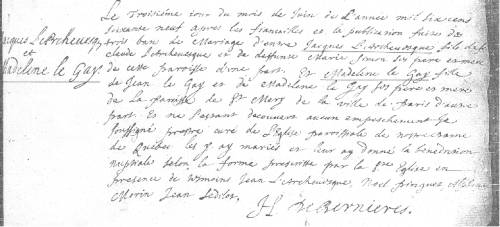 Jacques L'Archeuesq
et
Madeline le Gay.
Le Troisième jour du mois de Juin de L'année mil six cens
soixante neuf apres les fiançailles et la publication faites de
trois bans de Mariage d'entre Jacques L'Archeuesque fils de
claude L'Archeuesque et de deffunte Marie Simon ses pere et mere
de cette parroisse d'une part. Et Madeline le Gay fille
de Jean le Gay et de Madeline le Gay ses pere et mere
de la paroisse de St Mery de la ville de paris d'autre
part. Et ne s'estant decouvert aucun empeschement Je
soussigné prestre curé de l'Eglise paroissiale de nostre dame
de Quebec les y ay mariés et leur ay donné la bénédiction
nuptiale selon la forme prescritte par la Ste Eglise en
presence de temoins Jean L'Archeuesque, Noel pinguet,
Morin Jean
H. de Bernieres.